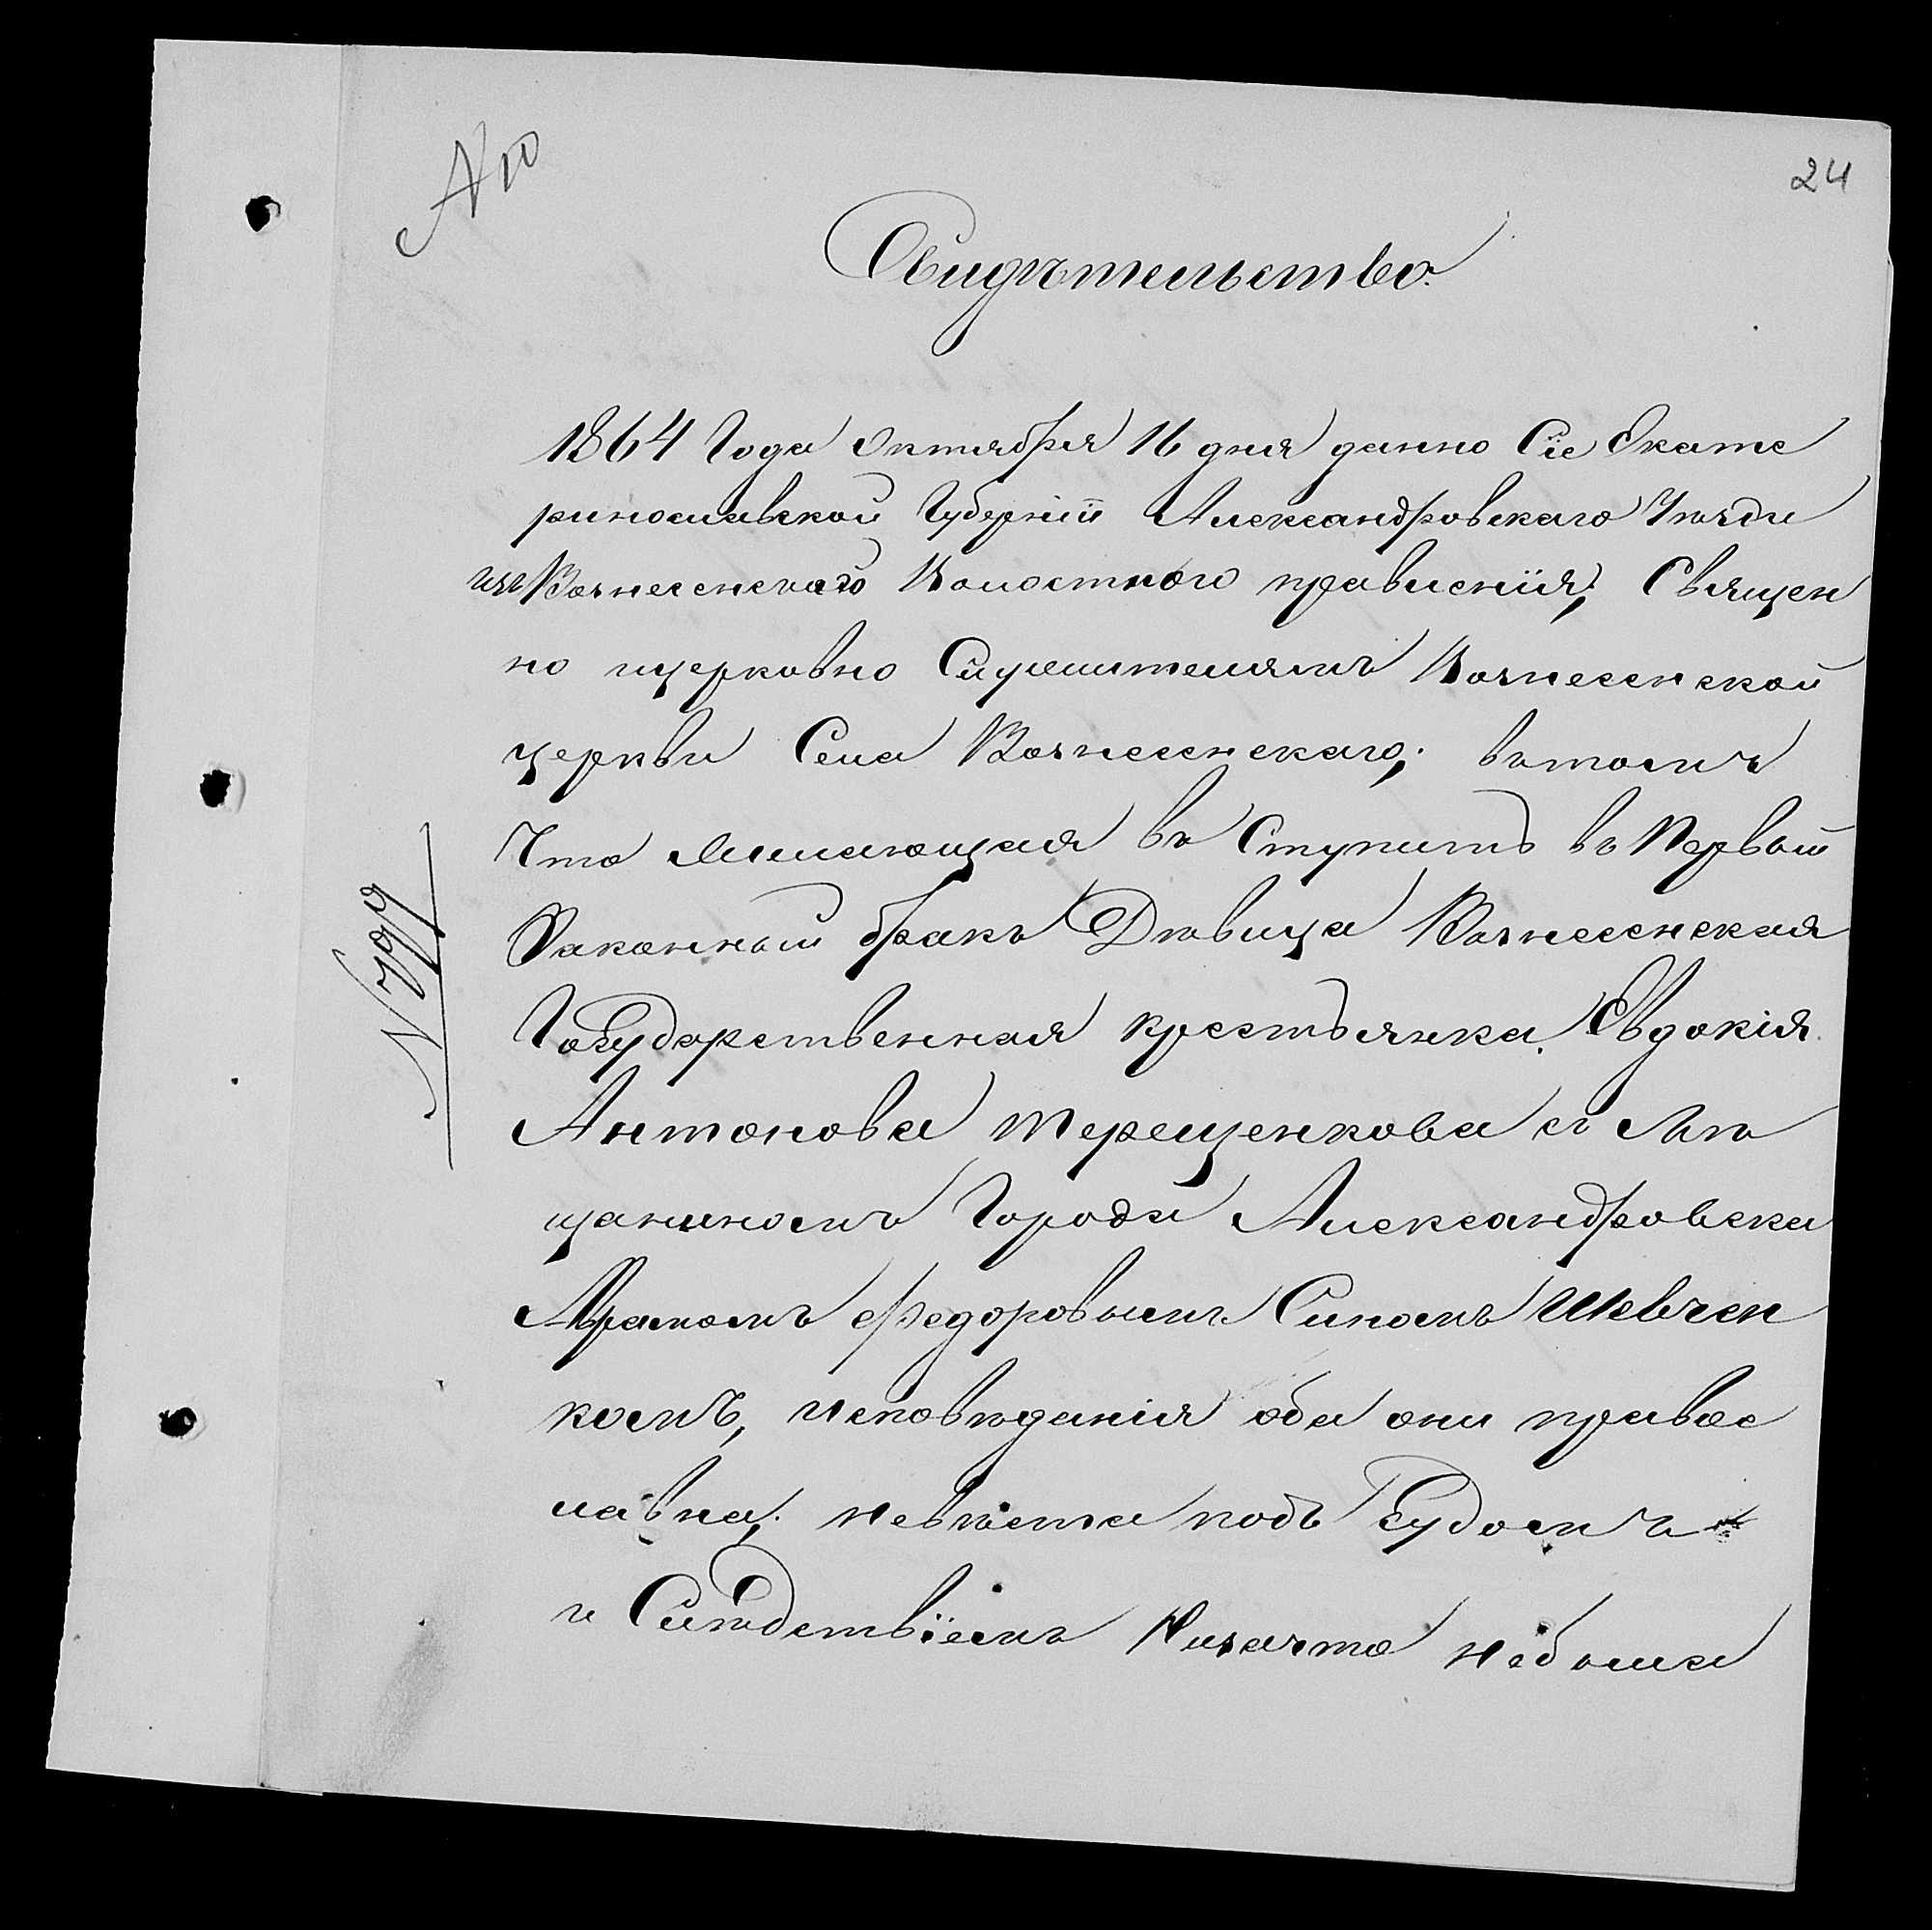 № 10
24
Свидѣтельство.
1864 Года Октября 16 дня данно Сіе Екате
ринославской Губерніи Александровскаго Уѣзда
изъ Вознесенскаго Волостного правленія; Священ
но церковно Служителямъ Вознесенской
церкви Села Вознесенскаго; вътомъ
Что желающая въ Ступить въ Первый
Законный бракъ Дѣвица Вознесенская
Государственная крестьянка Евдокія
Антонова Терещенкова съ Мѣ
щаниномъ Города Александровска
Федоровымъ Синомъ Шевчен
комъ, исповѣданія оба они правос
лавна; невѣста подъ Судомъ
и Слѣдствіемъ Низачто небыла
№ 399